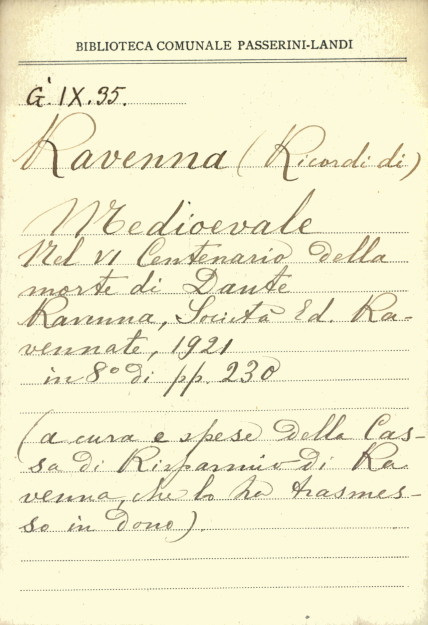 BIBLIOTECA COMUNALE PASSERINI-LANDI
G. IX. 95.
Ravenna (Ricordi di)
Medioevale
Nel VI Centenario della
morte di Dante
Ravenna, Società Ed. Ra-
vennate, 1921
in 8° di pp. 230
(a cura e spese della Cas-
sa di Risparmio di Ra
venna, che lo ha trasmes-
so in dono).